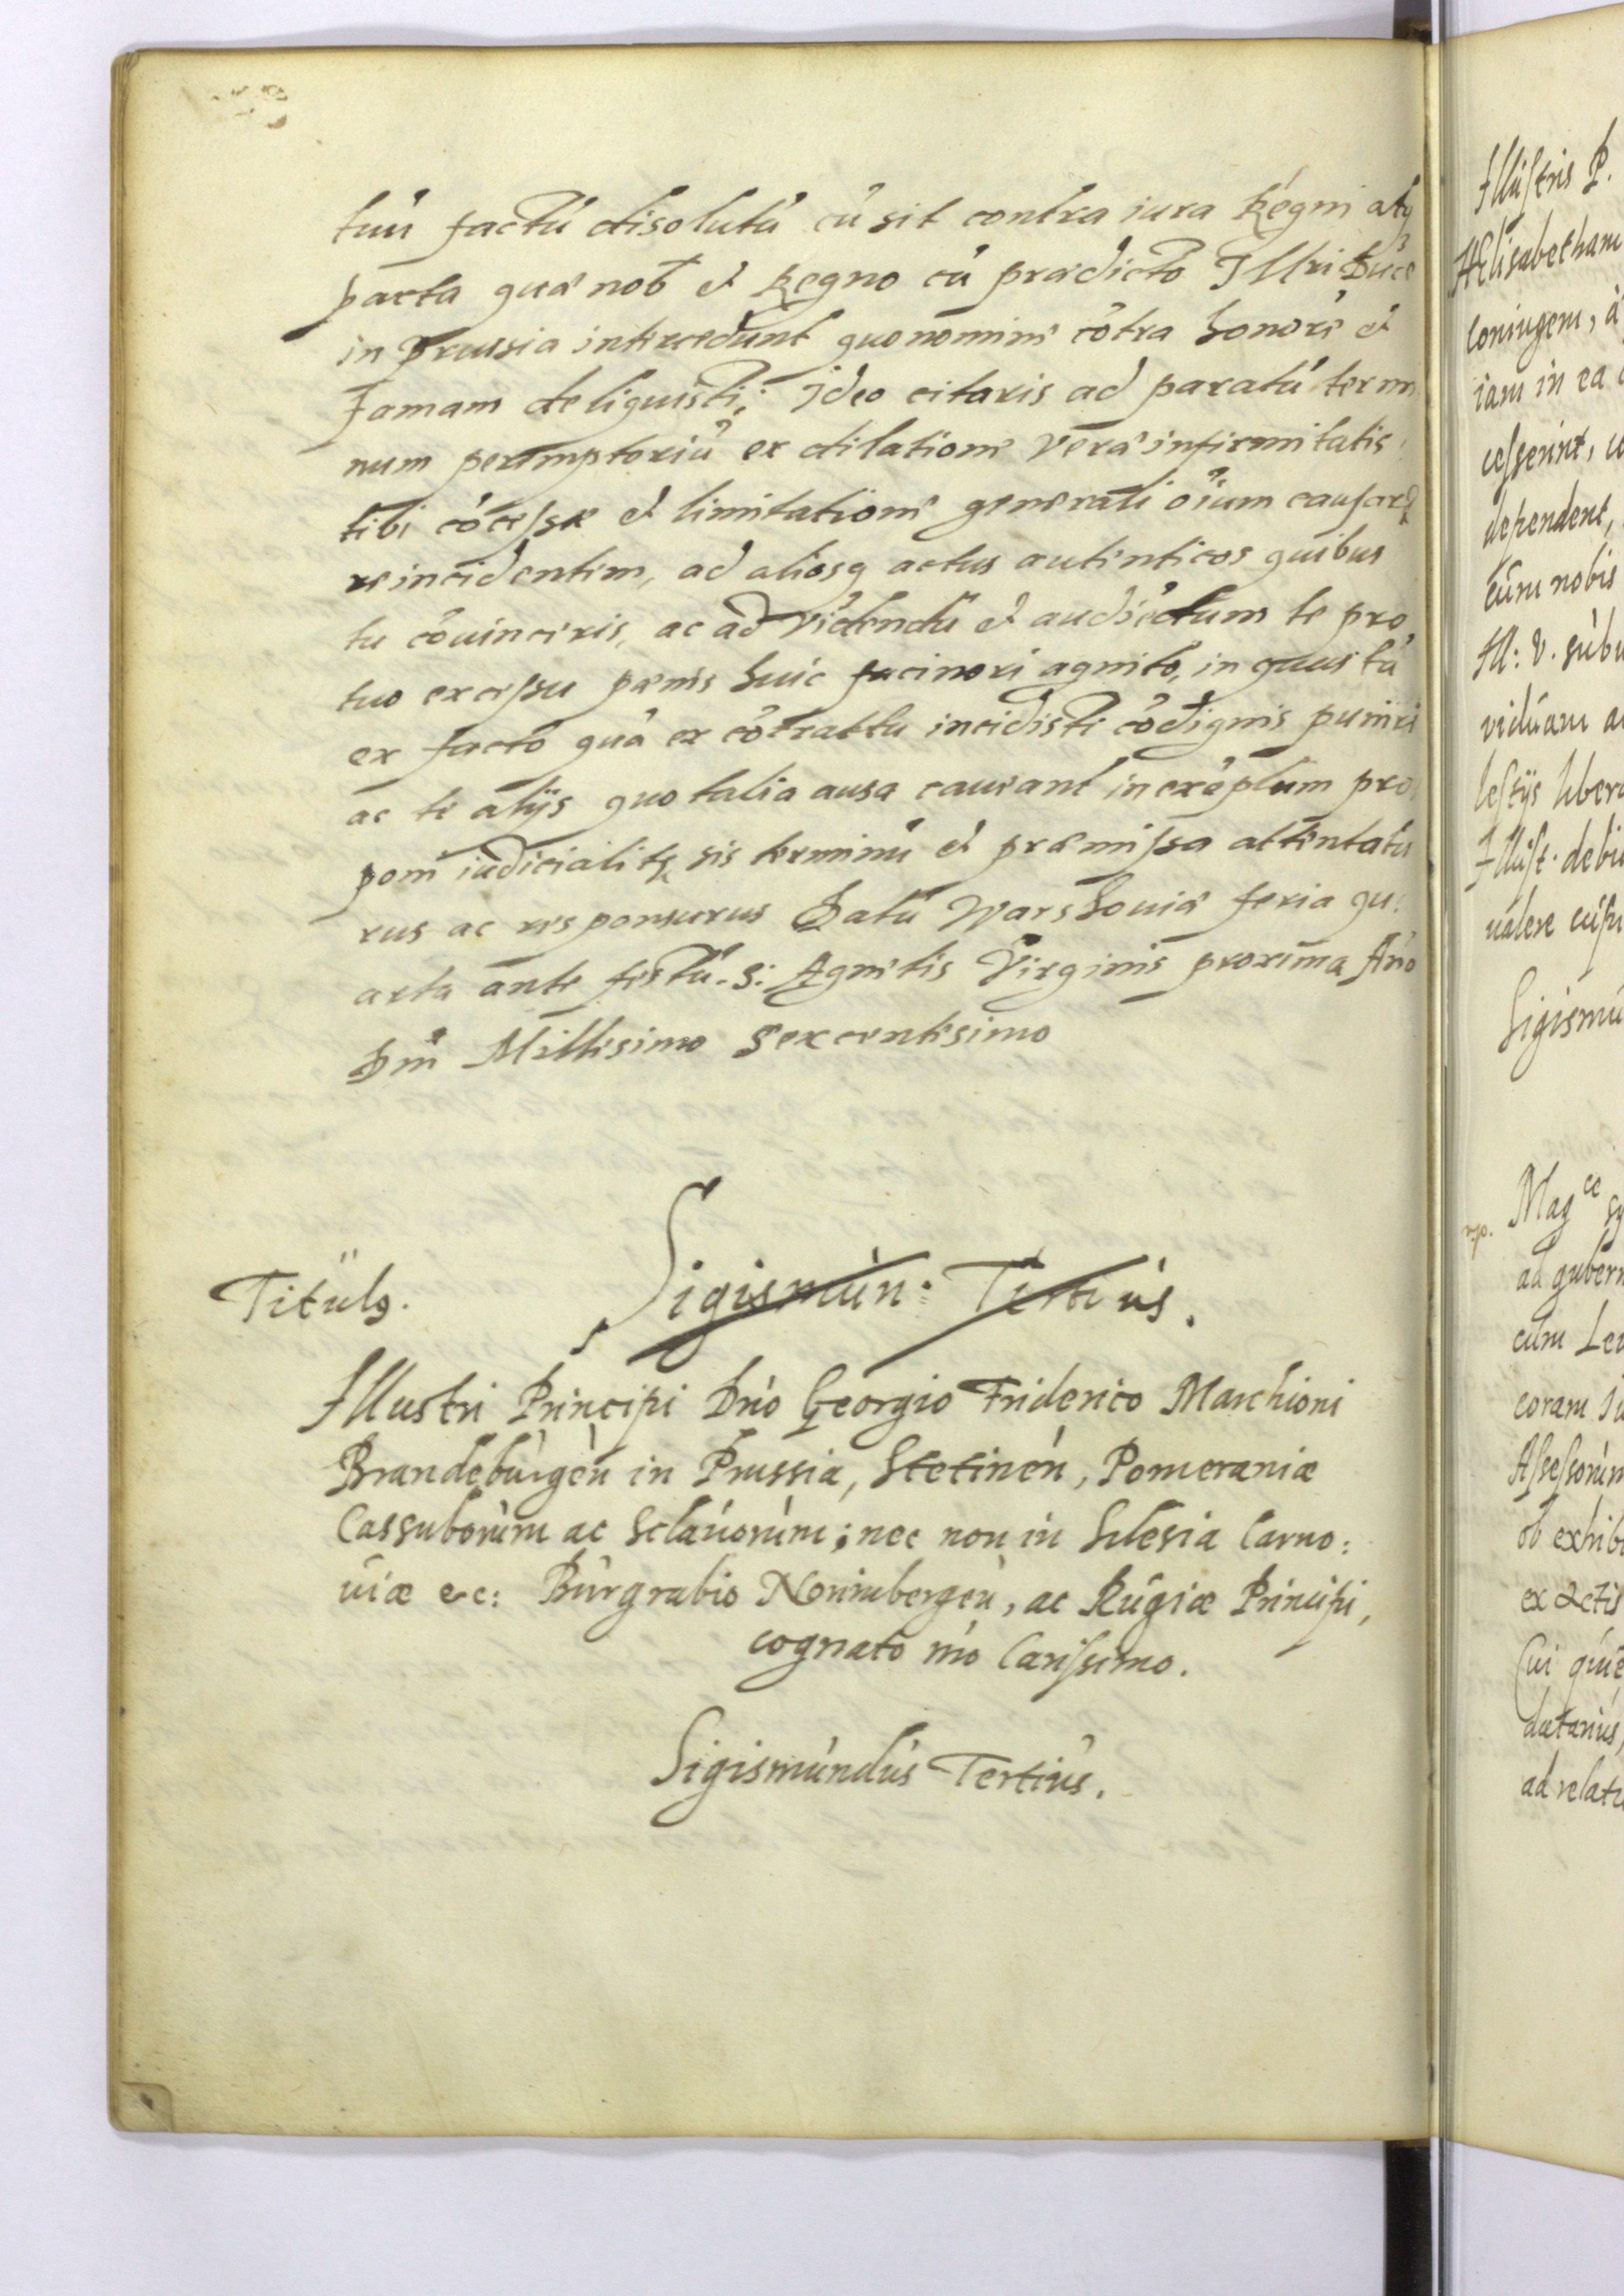 tuu factũ disolutũ cũ sit contra iura Regni atq
pacta quæ nob et Regno cũ prædicto Illri Duce
in Prussia intercedunt quo nomine cõtra honorẽ et
Famam deliquisti; Ideo citaris ad paratũ termi
num peremptoriũ ex dilatione veræ infirmitatis
tibi cõcessæ et limitatione generali oĩum causarũ
reincidentem, ad aliosq actus autenticos quibus
tu cõuinceris, ac ad videndũ et audiẽdum te pro
tuo excessu pænis huic facinori agnito, in quas tã
ex facto quã ex cõtractu incidisti cõdignis puniri
ac te alijs quo talia ausa caueant in exẽplum pro
poni iudicialitr sis terminũ et præmissa attentatu
rus ac responsurus Datũ Warshouiæ feria qu:
arta ante festũ S: Agnetis Virginis proxima Año
Dni Millisimo Sexcentisimo
Titulq.
Sigismun: Tertius.
Illustri Principi Dno Georgio Friderico Marchioni
Brandeburgeñ in Prussia, Stetineñ, Pomeraniæ
Cassuborum ac Sclauorum; nec non in Silesia Carno:
uiæ &c: Burgrabio Norimbergeñ, ac Rugiæ Principi,
cognato nio Carissimo.
Sigismundus Tertius.
Illustris P.
Helisabetham
Coniugem, a
iam in ea
cesserint, u
dependent,
cum nobis
Ill: V. subu
viduam a
lestijs libera
Illust. debi
ualere cupi
Sigismu
Mag ce
ad gubern
cum
coram
Assessorum
ob exhib
ex Actis
Cui que
datarius,
ad relatu